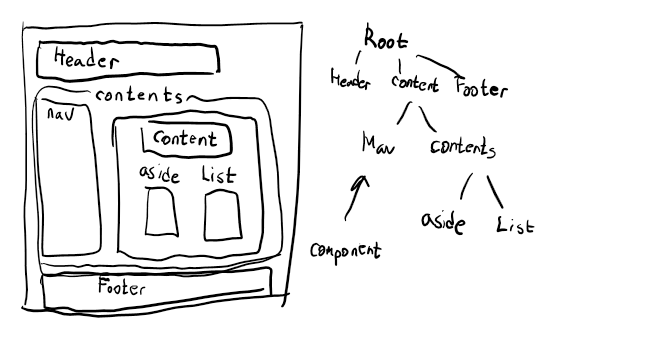 Header
contents
nav
Content
aside List
Footer
Root
Header content Footer
Nav contents
aside List
component